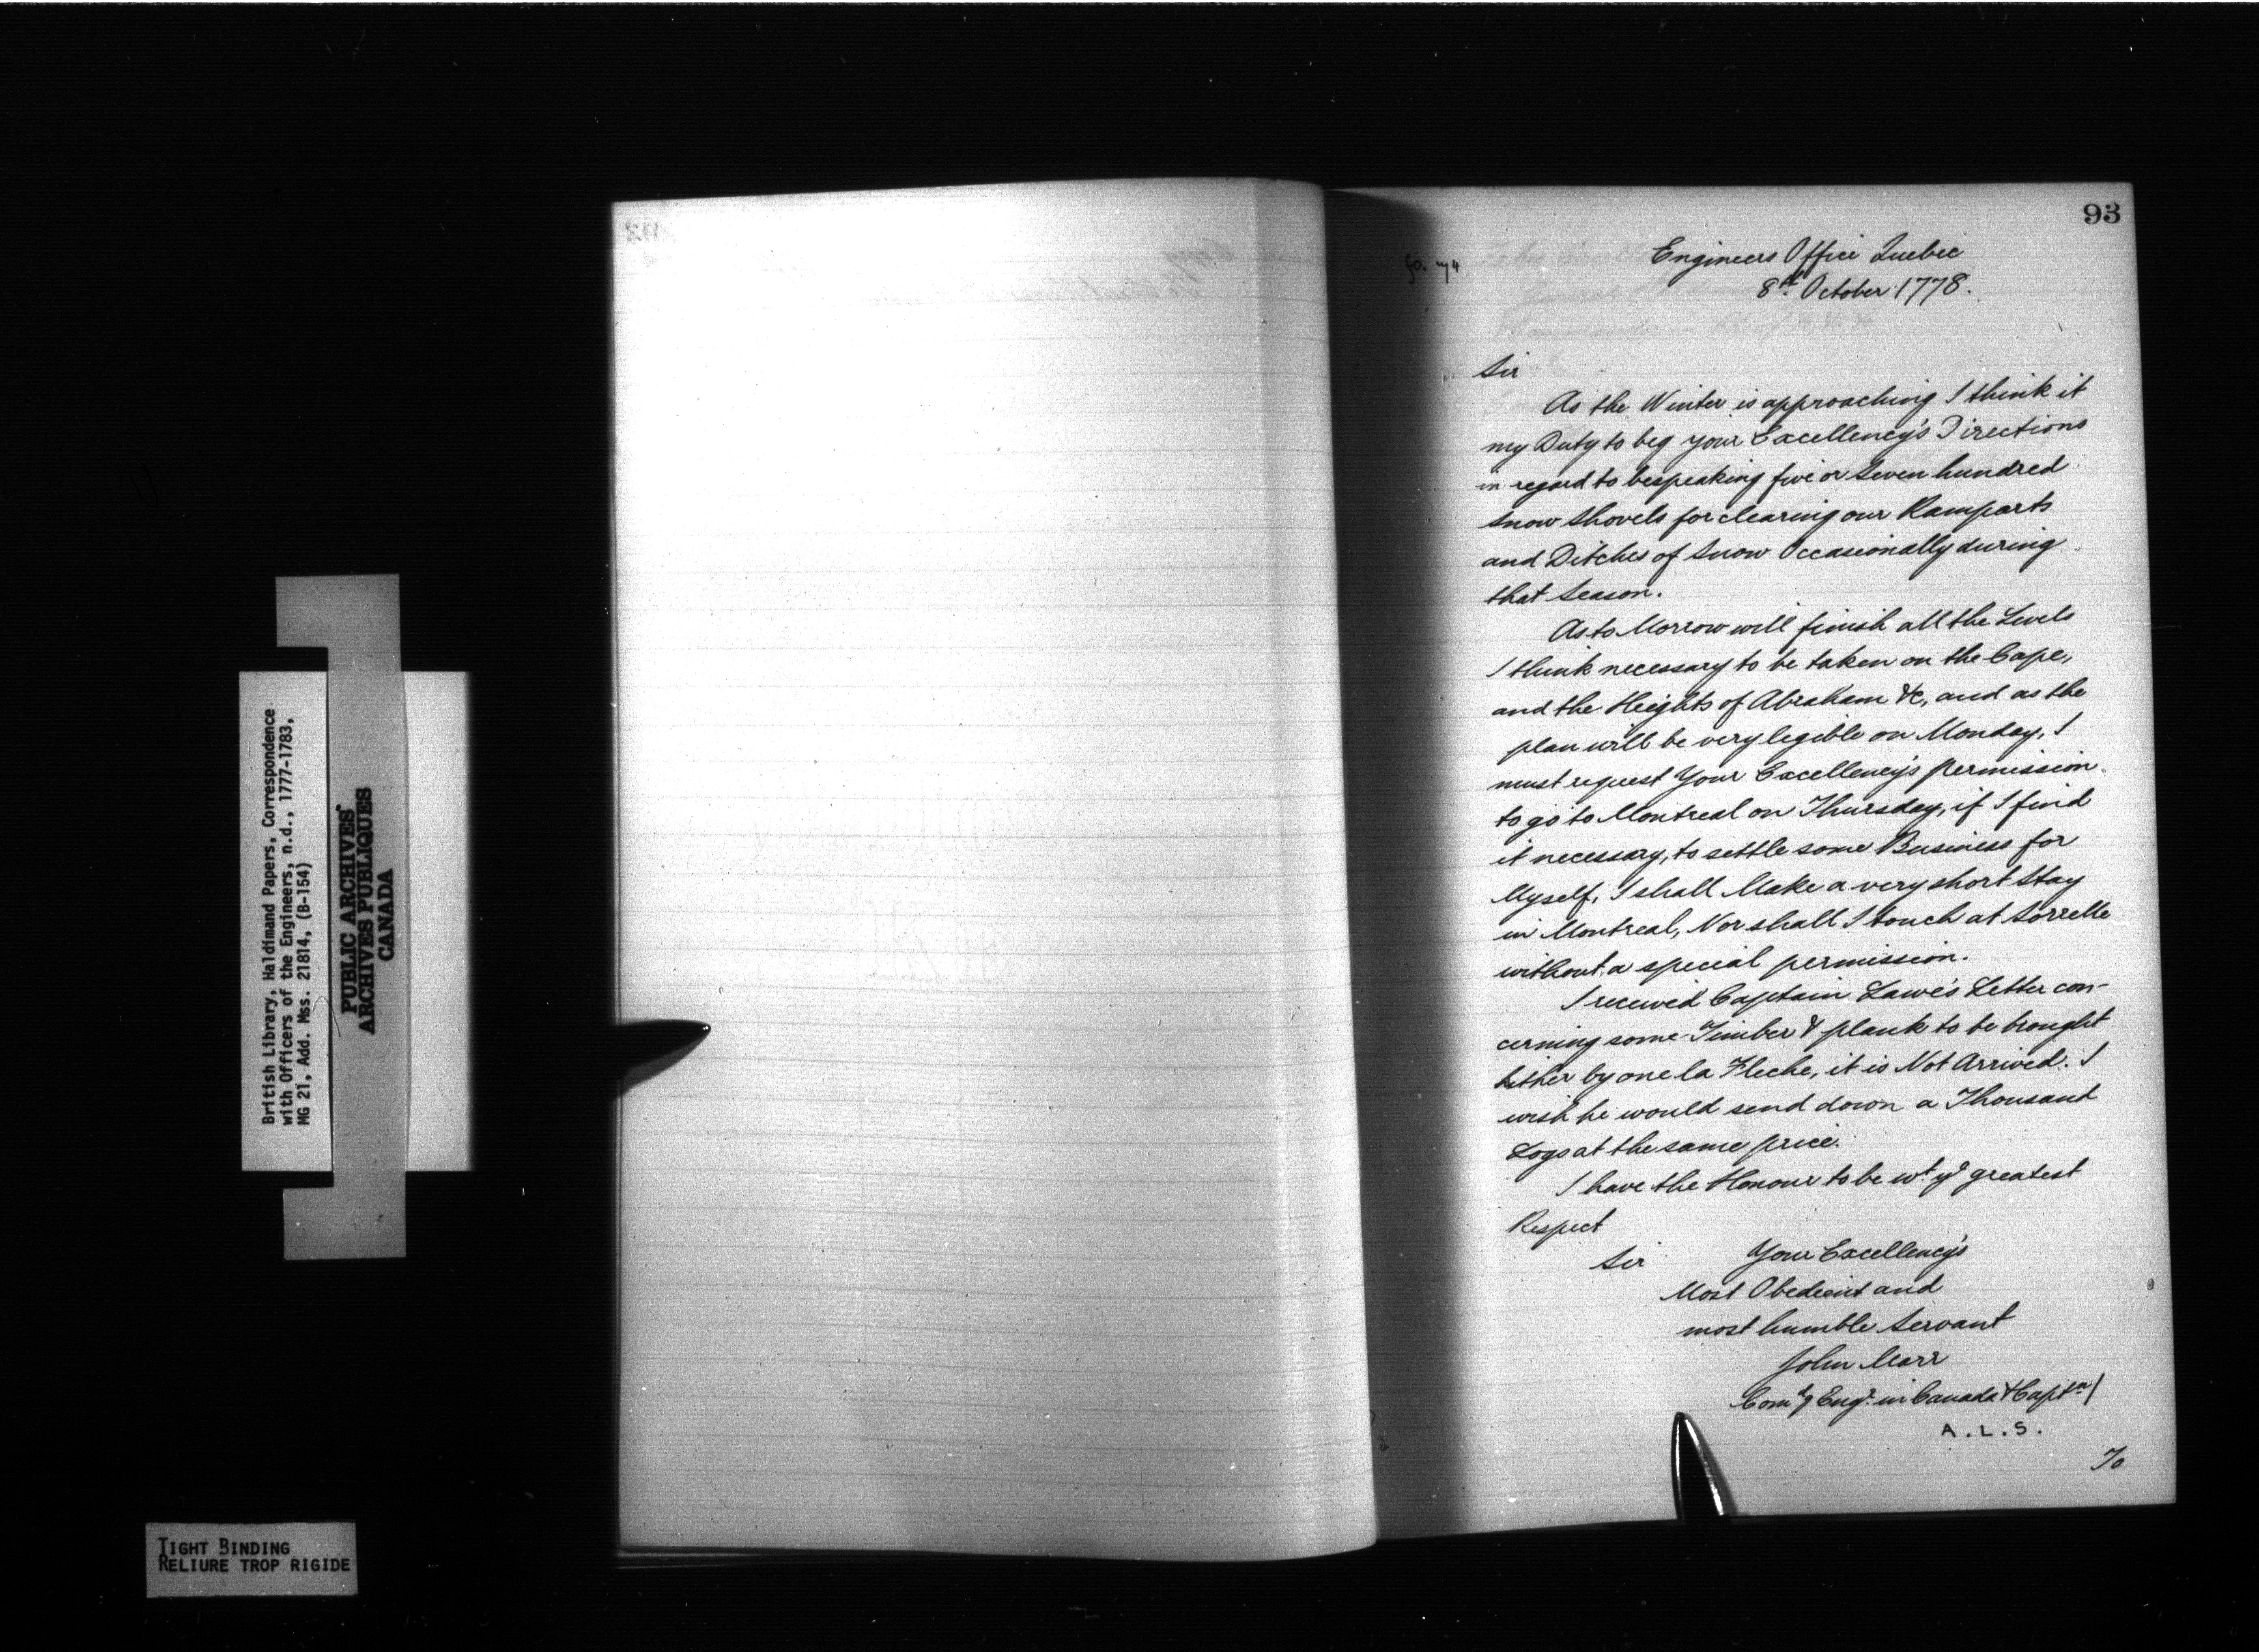 British Library, Haldimand Papers, Correspondence
with Officers of the Engineers, n.d., 1777-1783,
MG 21, Add. Mss. 21814, (B-154)
PUBLIC ARCHIVES
ARCHIVES PUBLIQUES
CANADA
TIGHT BINDING
RELIURE TROP RIGIDE
93
Engineers Office Quebec
8th October 1778.
Sir
As the Winter is approaching I think it
my Duty to beg your Excellency's Directions
in regard to bespeaking five or Seven hundred
Snow Shovels for clearing our Ramparts
and Ditches of Snow Occasionally during
that Season.
As to Morrow will finish all the Levels
I think necessary to be taken on the Cape,
and the Heights of Abraham &c, and as the
plan will be very legible on Monday, I
must request Your Excellency's permission
to go to Montreal on Thursday, if I find
it necessary, to settle some Business for
Myself, I shall Make a very short Stay
in Montreal, Nor shall I touch at Sorrelle
without a special permission.
I received Captain Lawe's Letter con-
cerning some Timber & plank to be brought
hither by one la Fleche, it is Not Arrived. I
wish he would send down a Thousand
Logs at the same price.
I have the Honour to be wt ye greatest
Respect
Sir Your Excellency's
Most Obedient and
most humble Servant
John Marr
Comdg Engr. in Canada & Captn/
A.L.S.
To